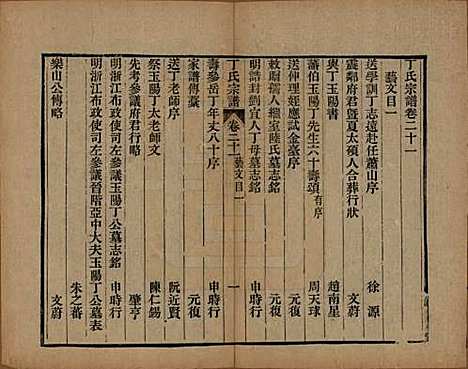 丁氏宗譜卷二十一
藝文目一
送學訓丁志遠赴任蕭山序 徐源
震鄰府君曁夏太碩人合葬行狀 文蔚
與丁玉陽書 趙南星
蕭伯玉陽丁先生六十壽頌有序 周天球
送仲理姪應試金臺序 元復
敕贈孺人繼室陸氏墓志銘
明誥封劉宜人丁母墓志銘 申時行
丁氏宗譜 卷二十一 藝文目一 一
壽參岳丁年丈八十序 申時行
家譜傳藁 元復
送丁老師序 阮近賢
祭玉陽丁太老師文 陳仁錫
先考參議府君行略 肇亨
明浙江布政使司左參議玉陽丁公墓志銘 申時行
明浙江布政使司左參議晉階亞中大夫玉陽丁公墓表 朱之蕃
樂山公傳略 文蔚